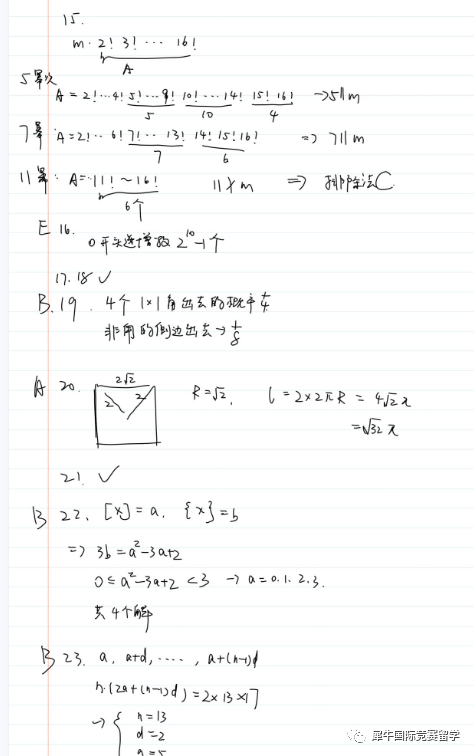 15.
m · 2! 3! ··· 16!
A
5幂次
A = 2!···4! 5!···9! 10!···14! 15! 16! → 5||m
5 10 4
7幂 A = 2!··6! 7!··13! 14! 15! 16! ⇒ 7||m
7 6
11幂: A = ··11! ~ 16! 11∤m ⇒ 排除法C
6个
E 16.
0开头递增数 2^10-1个
17.18 ✓
B. 19. 4个 1×1角出去的概率 1/4
非角的侧边出去 → 1/8
A 20. 2√2 R = √2, l = 2×2πR = 4√2 π
2 2 = √32 π
21. ✓
B 22. [x] = a, {x} = b
⇒ 3b = a²-3a+2
0 ≤ a²-3a+2 < 3 → a = 0.1.2.3.
共4个解
B 23. a, a+d, ····, a+(n-1)d
n·(2a+(n-1)d) = 2×13×17
→ { n = 13
d = 2
a = 5
犀牛国际竞赛留学